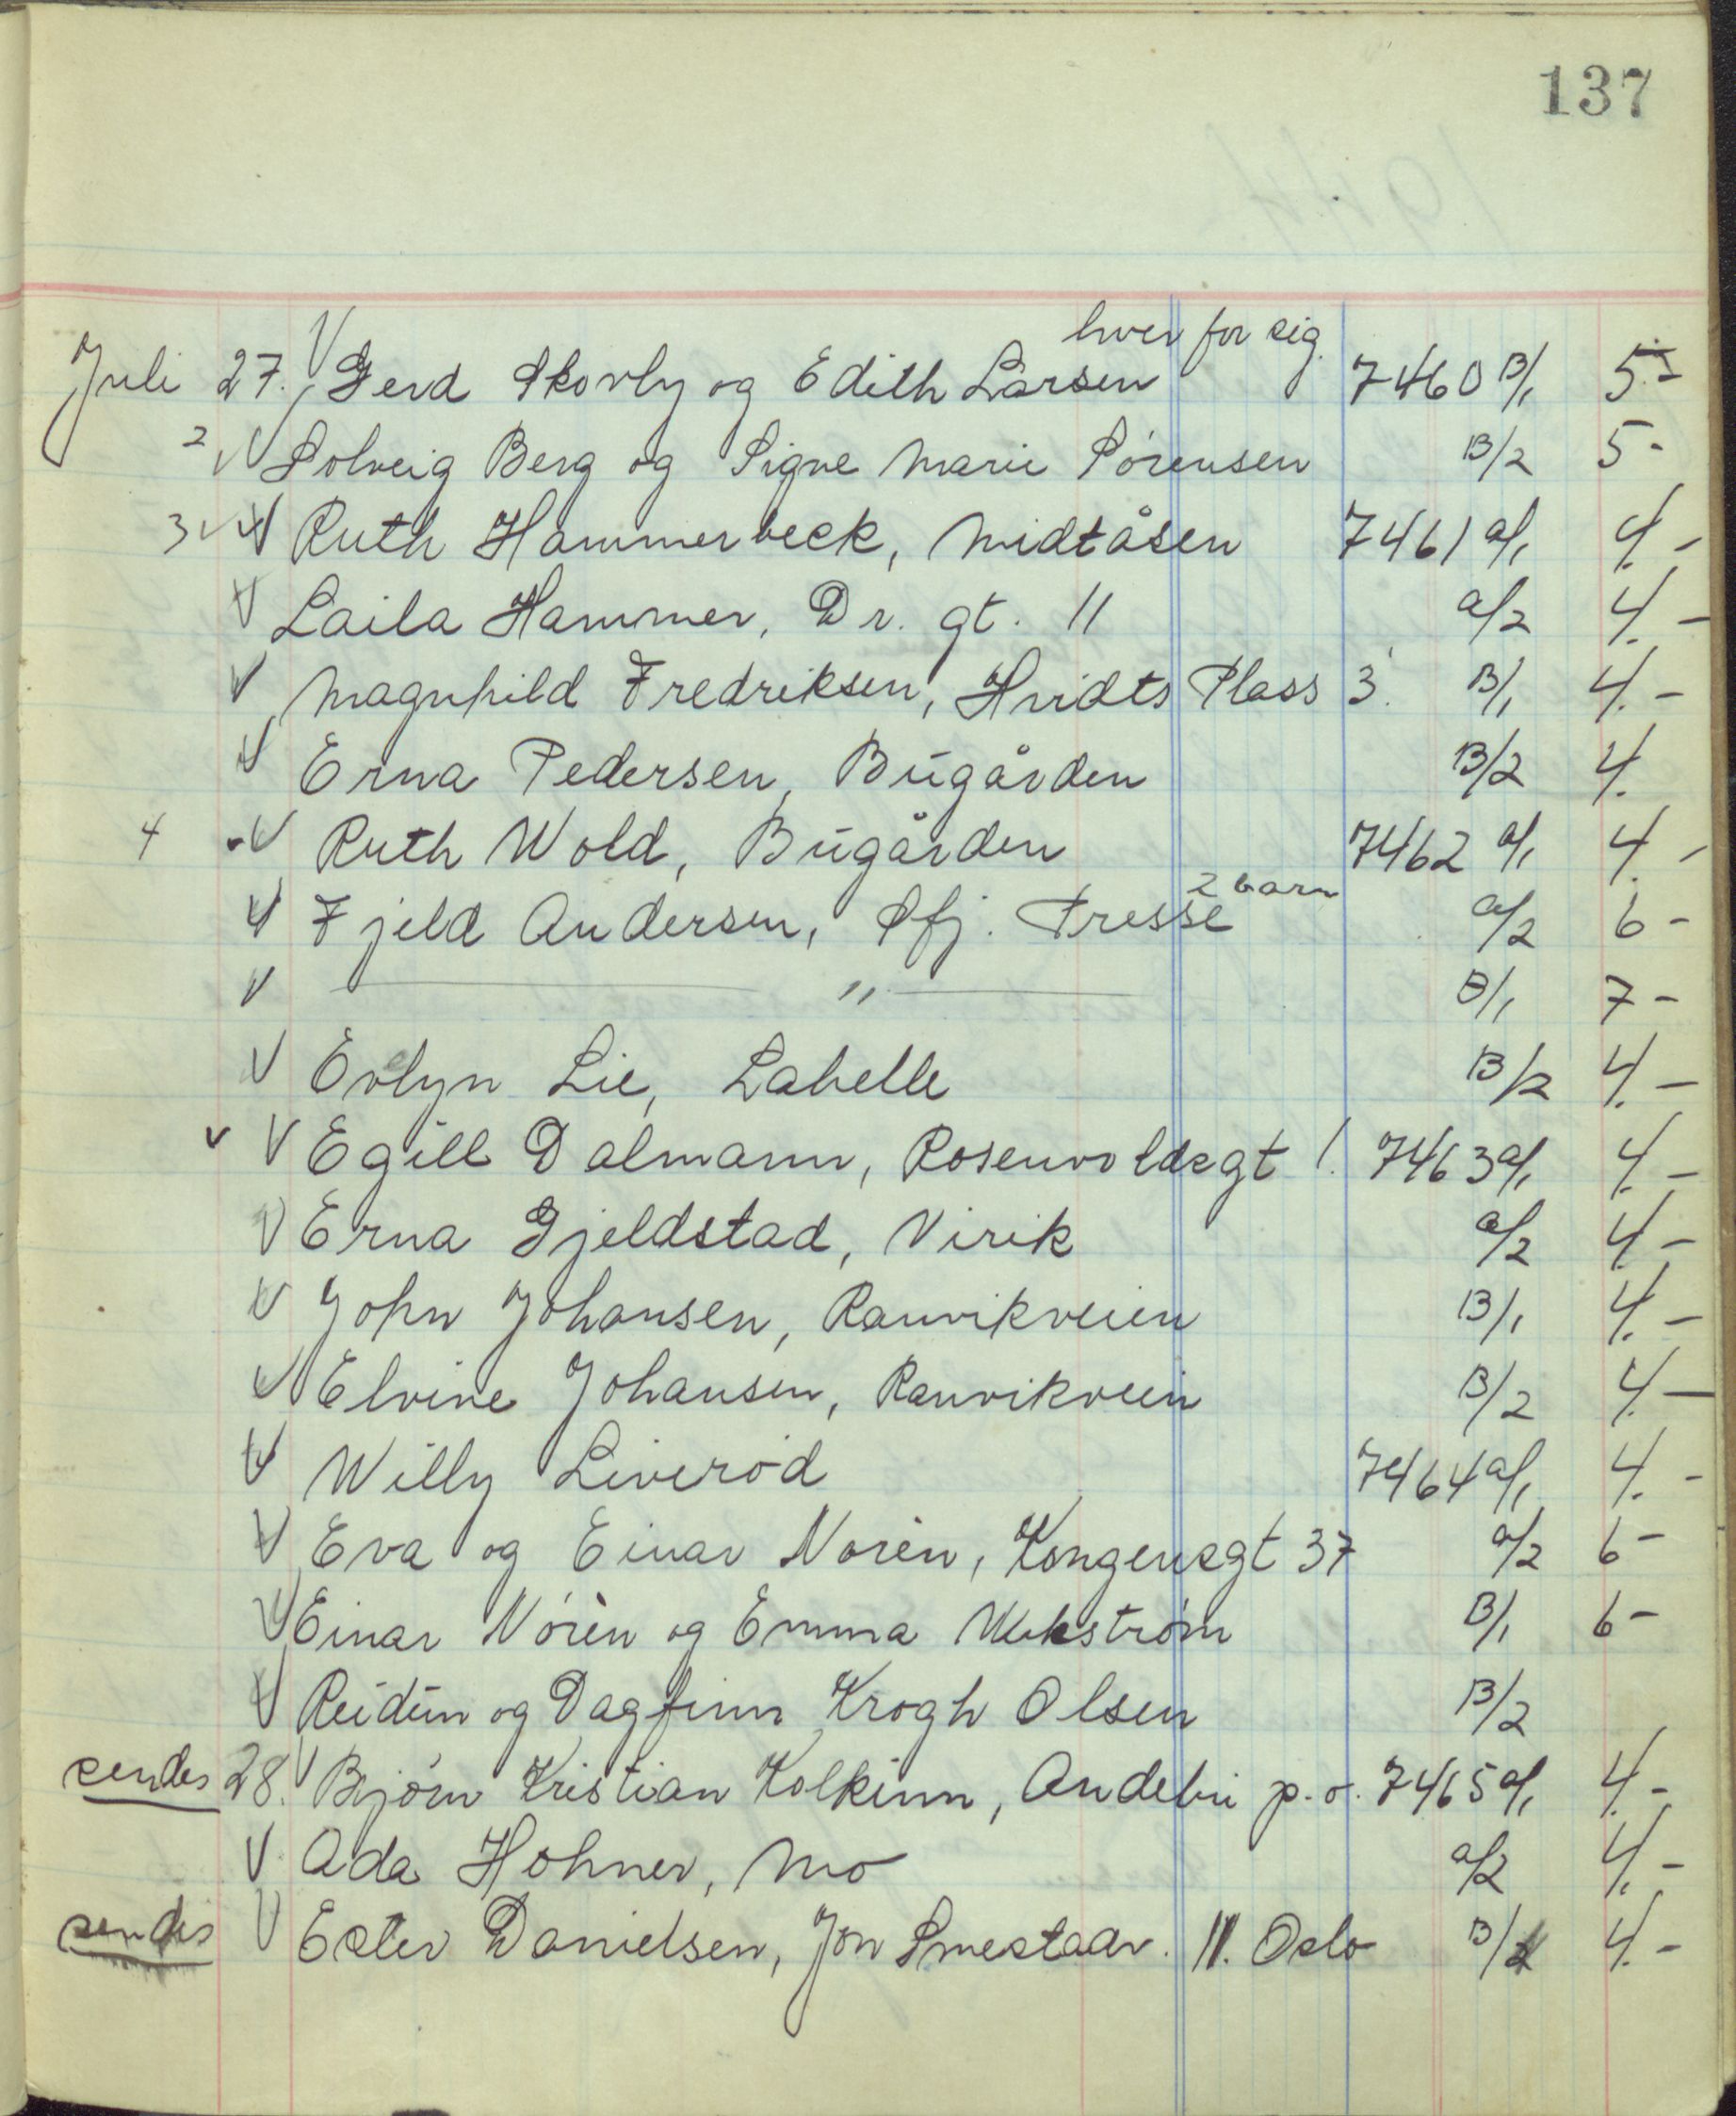 137
hver for sig.
Juli 27. V Gerd Skovly og Edith Larsen 7460 B/1 5.-
2 V Solveig Berg og Signe Marie Sørensen B/2 5-
3 V V Ruth Hammerbeck, Midtåsen 7461 a/1 4.-
V Laila Hammer, Dr. gt. 11 a/2 4.-
V Magnhild Fredriksen, Hvidts Plass 3. B/1 4.-
V Erna Pedersen, Bugården B/2 4.
4 V Ruth Wold, Bugården 7462 a/1 4.-
V Fjeld Andersen, Sfj. Presse 2 barn a/2 6-
V — " — B/1 7-
V Evelyn Lie, Labelle B/2 4.-
v V Egill Dalmann, Rosenvoldsgt 1. 7463 a/1 4.-
V Erna Gjeldstad, Virik a/2 4-
V John Johansen, Ranvikveien B/1 4.-
V Elvine Johansen, Ranvikveien B/2 4.-
V Willy Liverød 7464 a/1 4.-
V Eva og Einar Norèn, Kongensgt 37 a/2 6-
V Einar Norèn og Emma B/1 6-
V Reidun og Dagfinn Krogh Olsen B/2
sendes 28. V Bjørn Kristian Kolkinn, Andebu p.o. 7465 a/1 4.-
V Ada Hohner, Mo a/2 4.-
sendes V Ester Danielsen, Jon Smestadv. 11. Oslo B/ 4.-